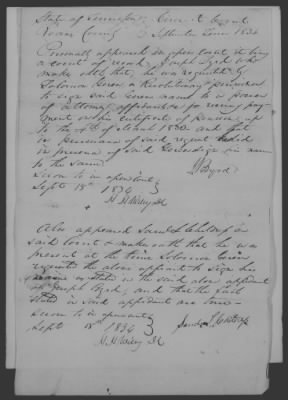 State of Tennessee } Circuit Court
Roane County } September Term 1834
Personally appeared in open court it being
a court of record Joseph Byrd who
made oath that he was requested by
Solomon Geren a Revolutionary pensioner
to sign said Geren name to a power
of attorney & affidavit for receiving pay-
ment on his certificate of Pension up
to the 4th of March 18 and that
in pursuance of said request he did
in presence of said sign his name
to the same
Sworn to in open court } J Byrd
Sept 18th 1834 }
H. H. Wiley Clk
Also appeared Samuel L Childress in
said court & maketh oath that he was
present at the time Solomon Geren
requested the above affiant to sign his
name as stated in the said above affidavit
of Joseph Byrd, and that the facts
stated in said affidavit are true
Sworn to in open court }
Sept 18th 1834 } Samuel L Childress
H. H. Wiley Clk